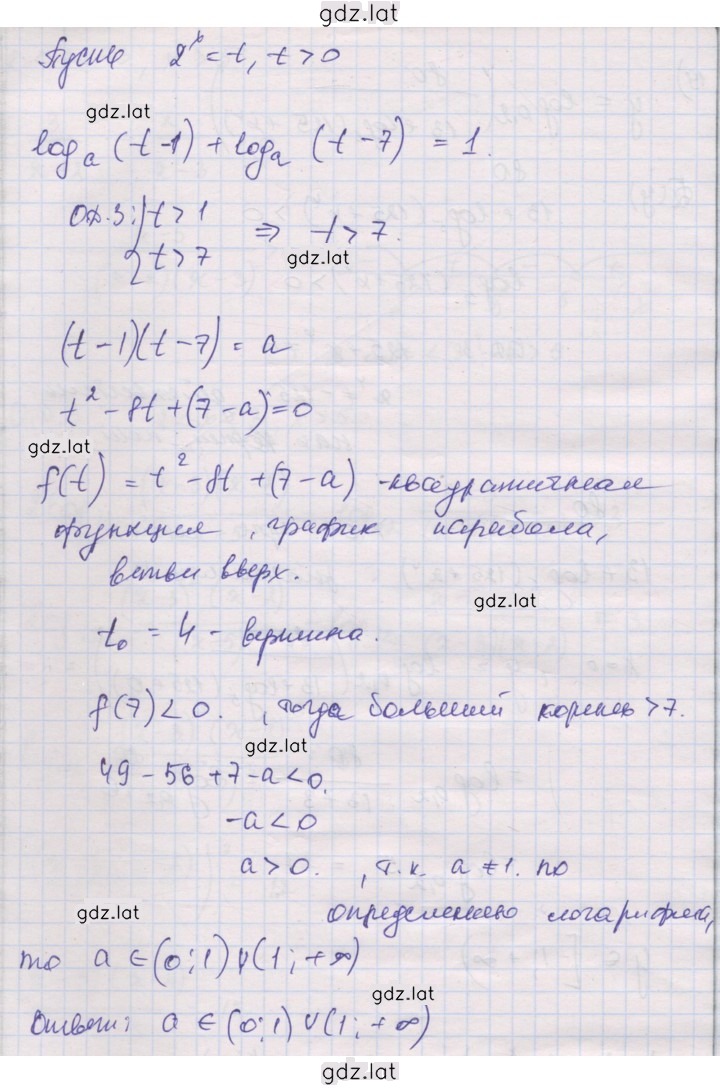 gdz.lat
Пусть 2^x = t, t > 0
gdz.lat
log_a (t-1) + log_a (t-7) = 1.
ОДЗ: { t > 1
t > 7 ⇒ t > 7.
gdz.lat
(t-1)(t-7) = a
t² - 8t + (7-a) = 0
gdz.lat
f(t) = t² - 8t + (7-a) - квадратичная
функция, график парабола,
ветви вверх.
gdz.lat
t₀ = 4 - вершина.
f(7) < 0. , тогда больший корень > 7.
gdz.lat
49 - 56 + 7 - a < 0.
-a < 0
a > 0. , т.к. a ≠ 1. по
определению логарифма,
gdz.lat
то a ∈ (0; 1) ∪ (1; +∞)
gdz.lat
Ответ: a ∈ (0; 1) ∪ (1; +∞)
gdz.lat